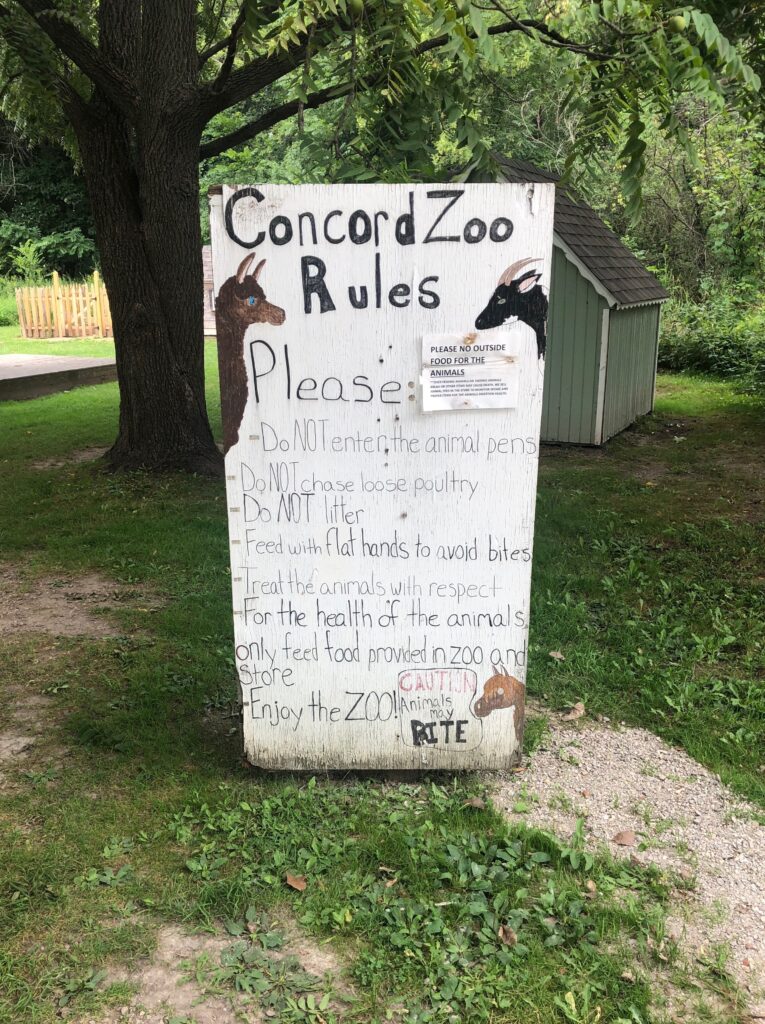 Concord Zoo
Rules
Please:
PLEASE NO OUTSIDE
FOOD FOR THE
ANIMALS
- Do NOT enter the animal pens
- Do NOT chase loose poultry
- Do NOT litter
- Feed with flat hands to avoid bites
- Treat the animals with respect
- For the health of the animals,
only feed food provided in zoo and
store
- Enjoy the ZOO!
CAUTION
Animals
may
BITE